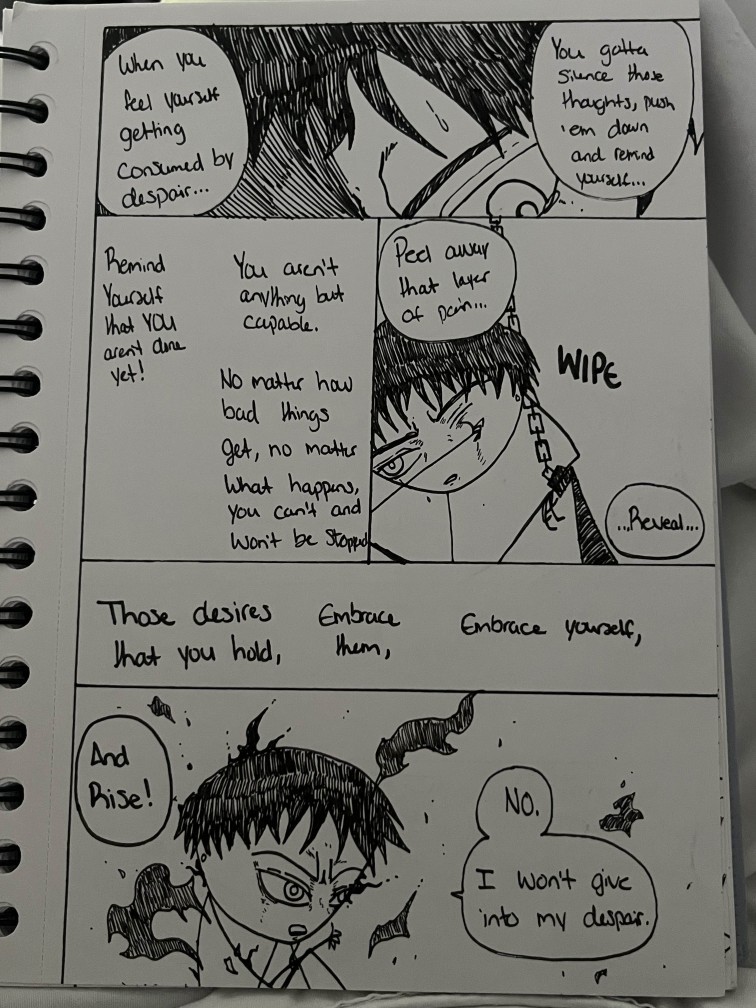 When you
feel yourself
getting
consumed by
despair...
You gotta
silence those
thoughts, push
'em down
and remind
yourself...
Remind
Yourself
that YOU
aren't done
yet!
You aren't
anything but
capable.
No matter how
bad things
get, no matter
what happens,
you can't and
won't be stopped
Peel away
that layer
of pain...
WIPE
...Reveal...
Those desires
that you hold,
Embrace
them,
Embrace yourself,
And
Rise!
No.
I won't give
into my despair.